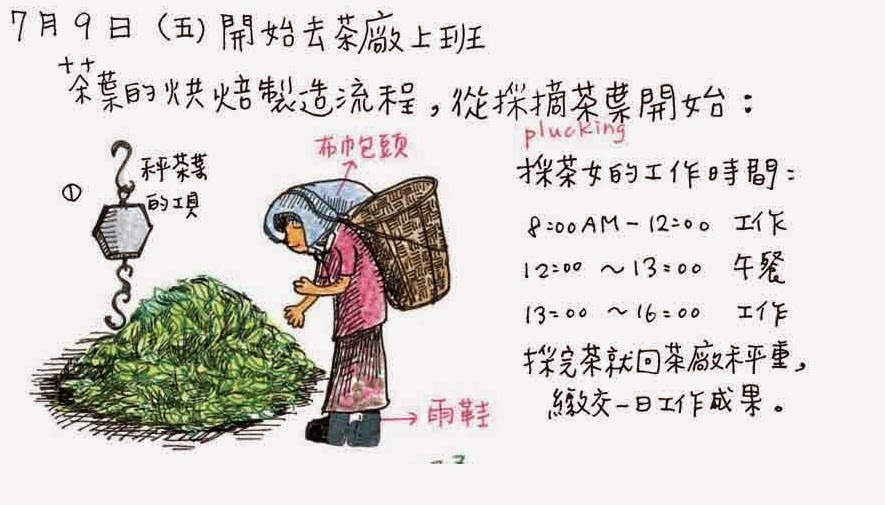 7月9日(五)開始去茶廠上班
茶葉的烘焙製造流程,從採摘茶葉開始:
plucking
布巾包頭
秤茶葉
的工具
①
採茶女的工作時間:
8:00AM-12:00 工作
12:00 ~13:00 午餐
13:00 ~16:00 工作
採完茶就回茶廠秤重,
繳交一日工作成果。
雨鞋